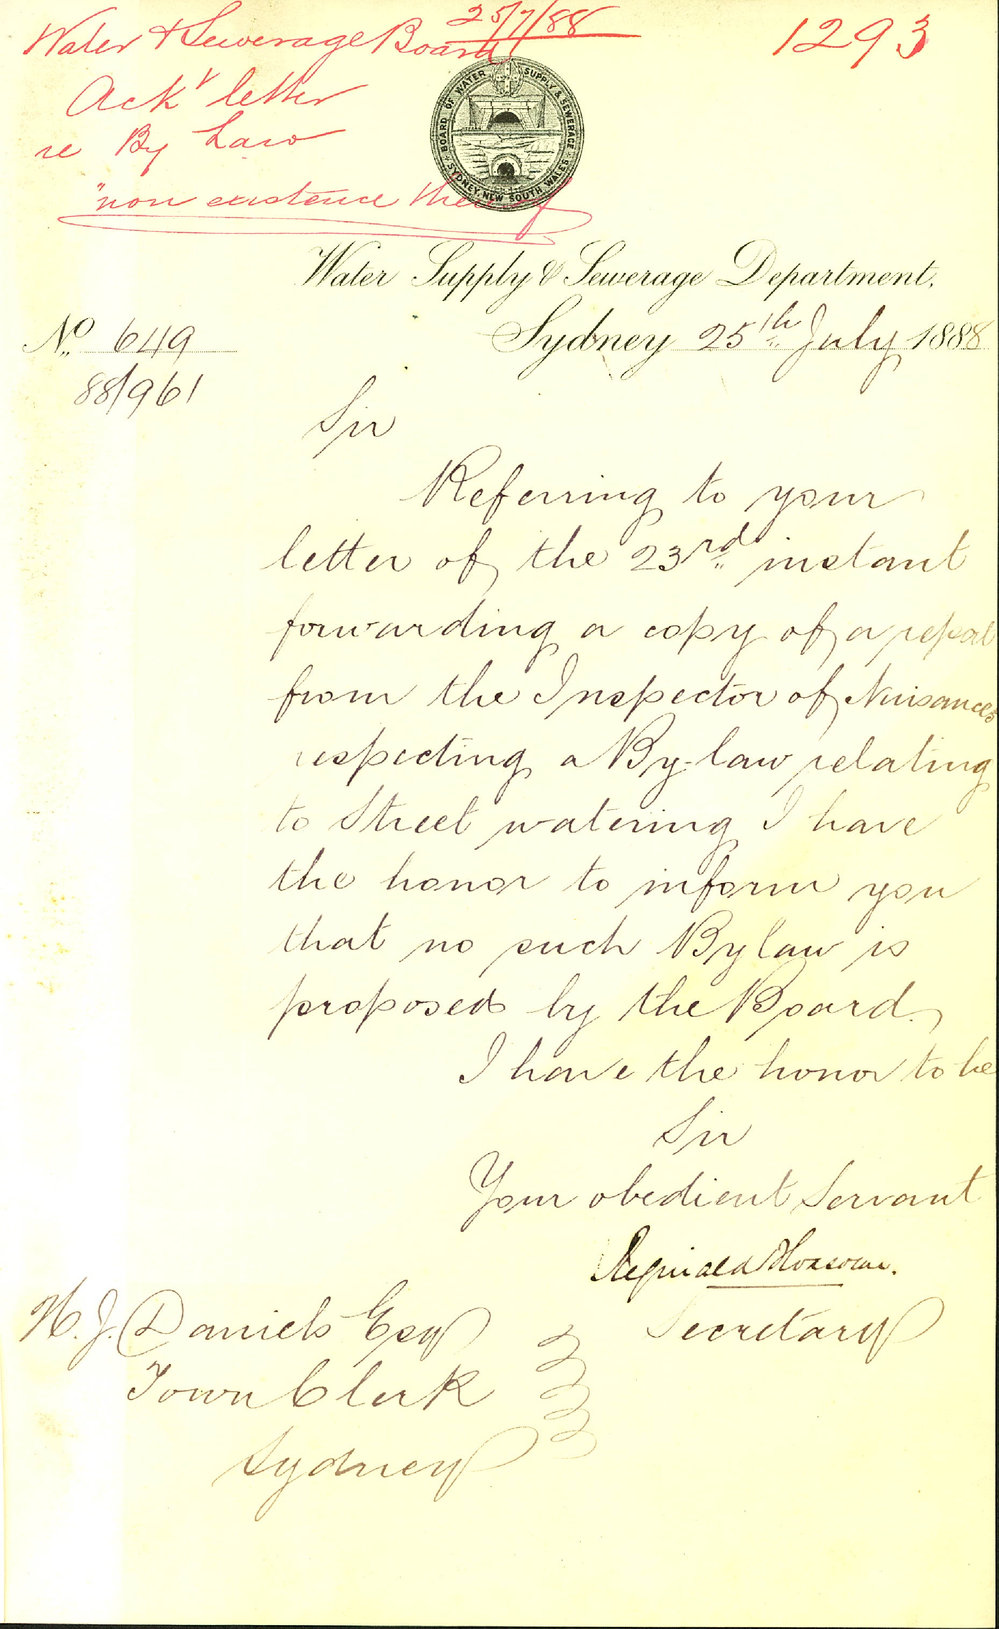 25/7/88
1293
Water & Sewerage Board
Ackr letter
re By Law
"non existence thereof
BOARD OF WATER SUPPLY & SEWERAGE
SYDNEY, NEW SOUTH WALES
Water Supply & Sewerage Department.
Sydney 25th July 1888
No. 649
88/961
Sir
Referring to your
letter of the 23rd instant
forwarding a copy of a report
from the Inspector of Nuisances
respecting a By-law relating
to Street watering I have
the honor to inform you
that no such By law is
proposed by the Board.
I have the honor to be
Sir
Your obedient Servant
Reginald
Secretary
H. J. Daniels Esq
Town Clerk
Sydney